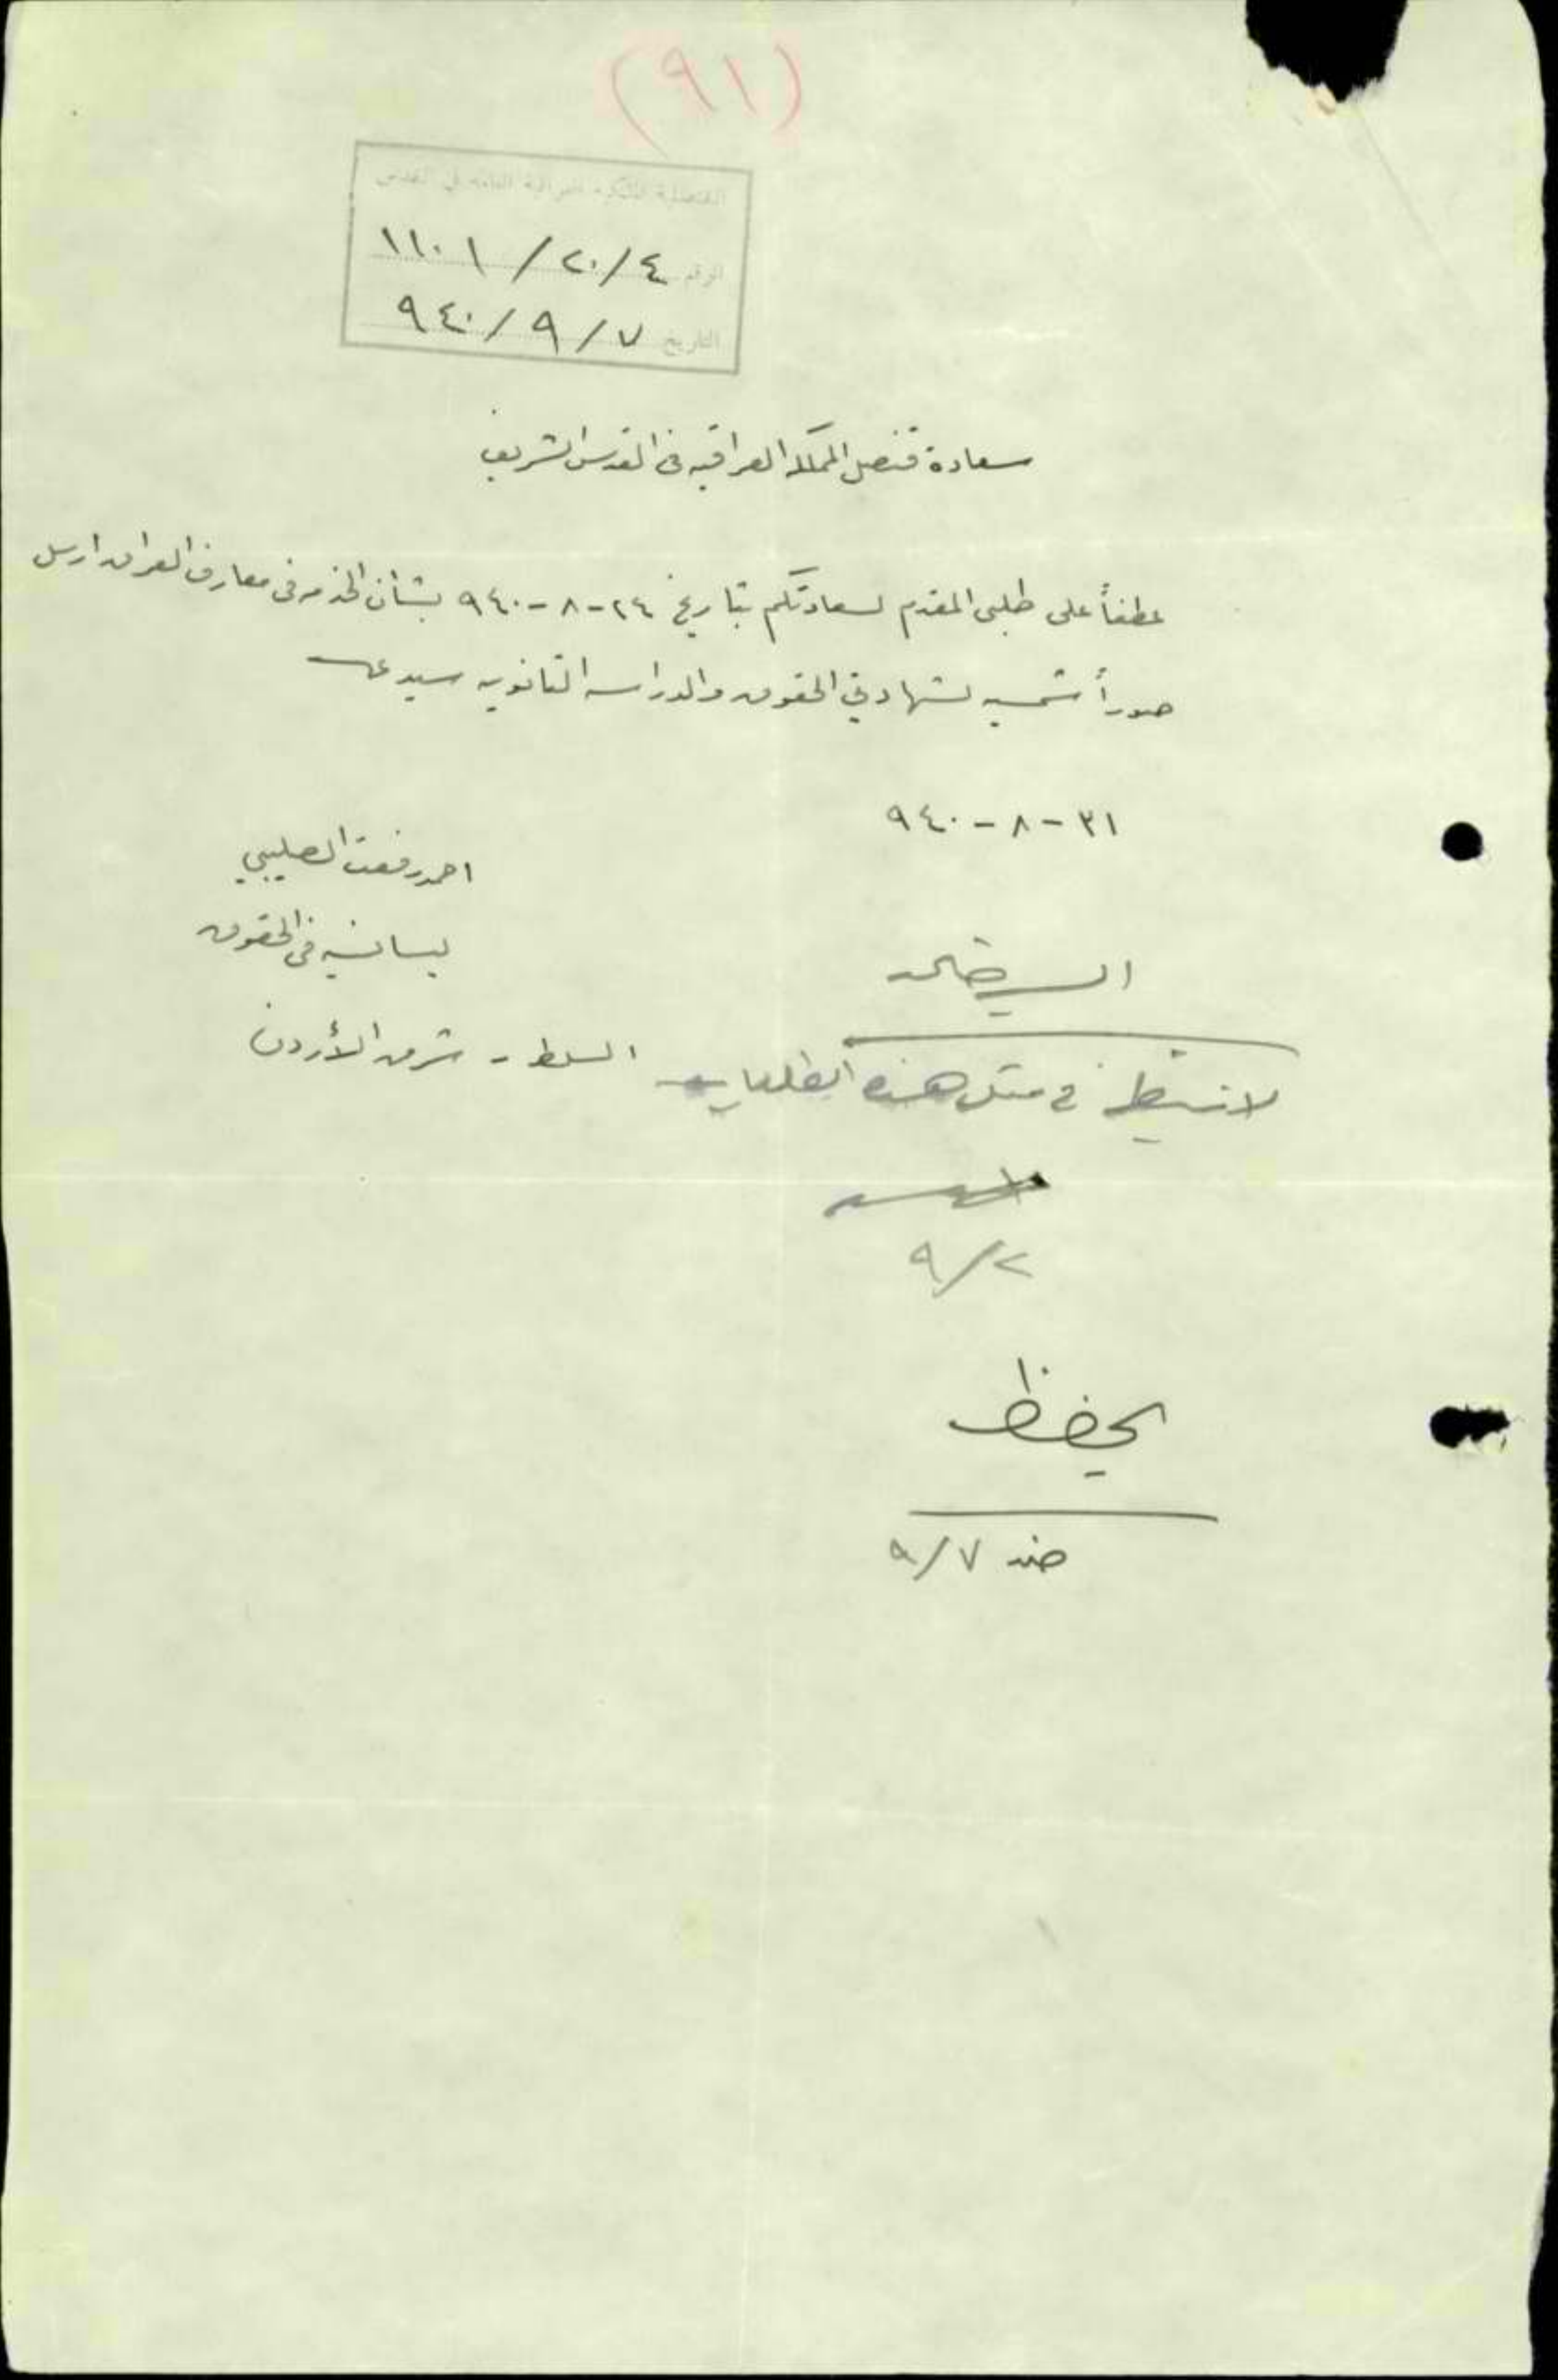 (٩١)
القنصلية الملكية العراقية العامة في القدس
الرقم ٤/٢٠/١١٠١
التاريخ ٧/٩/٩٤٠
سعادة قنصل المملكة العراقيه في القدس الشريف
عطفاً على طلبي المقدم لسعادتكم بتاريخ ٢٤-٨-٩٤٠ بشأن الخدمه في معارف العراق ارسل
صوراً شمسيه لشهادتي الحقوق والدراسه الثانويه سيدي
٣١-٨-٩٤٠
احمد رفعت الصليبي
ليسانسيه في الحقوق
السلط - شرق الأردن
السيد
لا في مثل هذه الطلبات
٢/٩
يحفظ
٧/٩